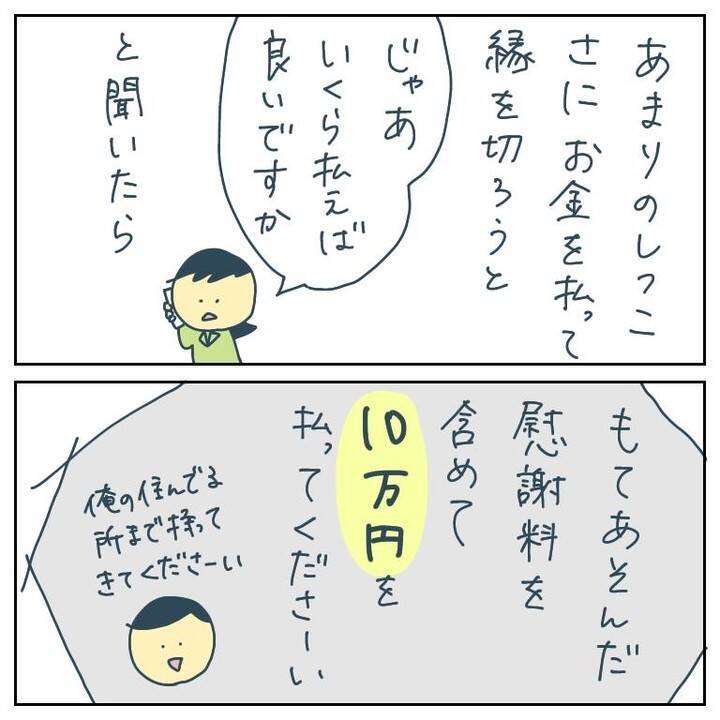 あまりのしつこ
さに お金を払って
縁を切ろうと
じゃあ
いくら払えば
良いですか
と聞いたら
もてあそんだ
慰謝料を
含めて
10万円を
払ってくださーい
俺の住んでる
所まで持って
きてくださーい